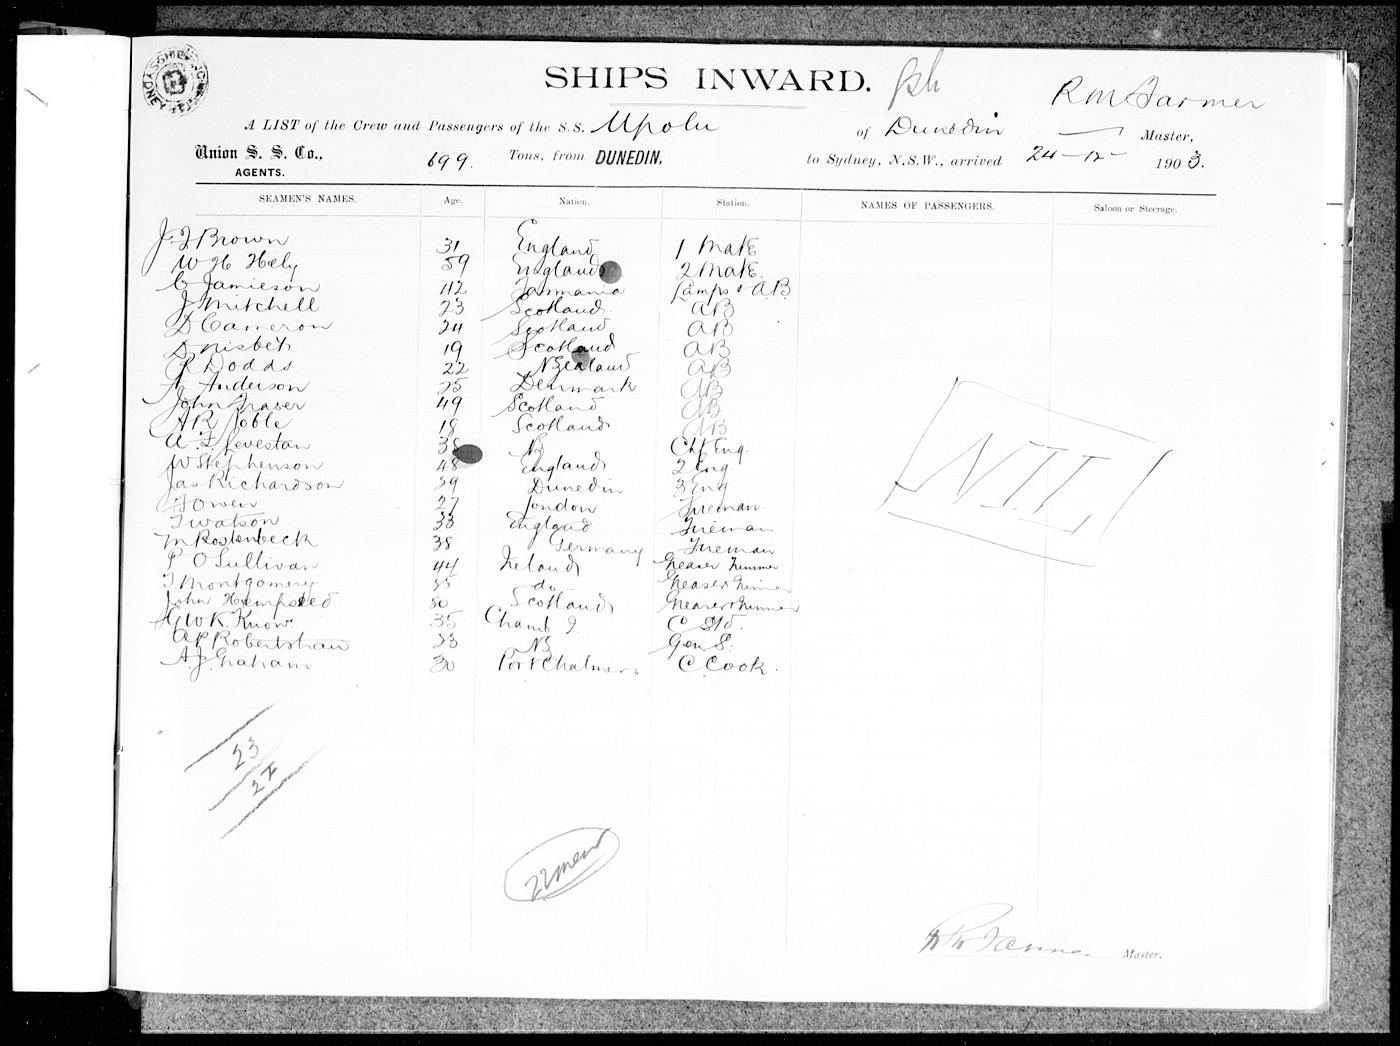 SHIPS INWARD.
R M Farmer
A LIST of the Crew and Passengers of the S.S. Upolu of Dunedin Master,
Union S. S. Co., AGENTS. 699. Tons, from DUNEDIN. to Sydney, N.S.W., arrived 24-12- 1903.
SEAMEN'S NAMES. Age. Nation. Station. NAMES OF PASSENGERS. Saloon or Steerage.
J F Brown 31 England 1 Mate
W H Hely 59 England 2 Mate.
C Jamieson 42 Tasmania Lamps & A.B.
J Mitchell 23 Scotland AB
D Cameron 24 Scotland AB
D Nisbet 19 Scotland AB
R Dodds 22 N Zealand AB
A Anderson 25 Denmark AB
John Fraser 49 Scotland AB
A R Noble 18 Scotland AB
A. F. Levestan 38 NZ Chf Eng.
W Stephenson 48 England 2 Eng
Jas Richardson 29 Dunedin 3 Eng
F Owen 27 London Fireman
T Watson 33 England Fireman
M Rostenbeck 38 Germany Fireman
P O Sullivan 44 Ireland Greaser Trimmer
T Montgomery do Greaser Trimmer
John Hempsted 50 Scotland Greaser Trimmer
G W K. Know 35 C Std.
A P Robertshaw 23 NZ Gen S.
A. J. Graham 30 Port Chalmers C Cook.
NIL
23
27
22 men
R M Farmer Master.